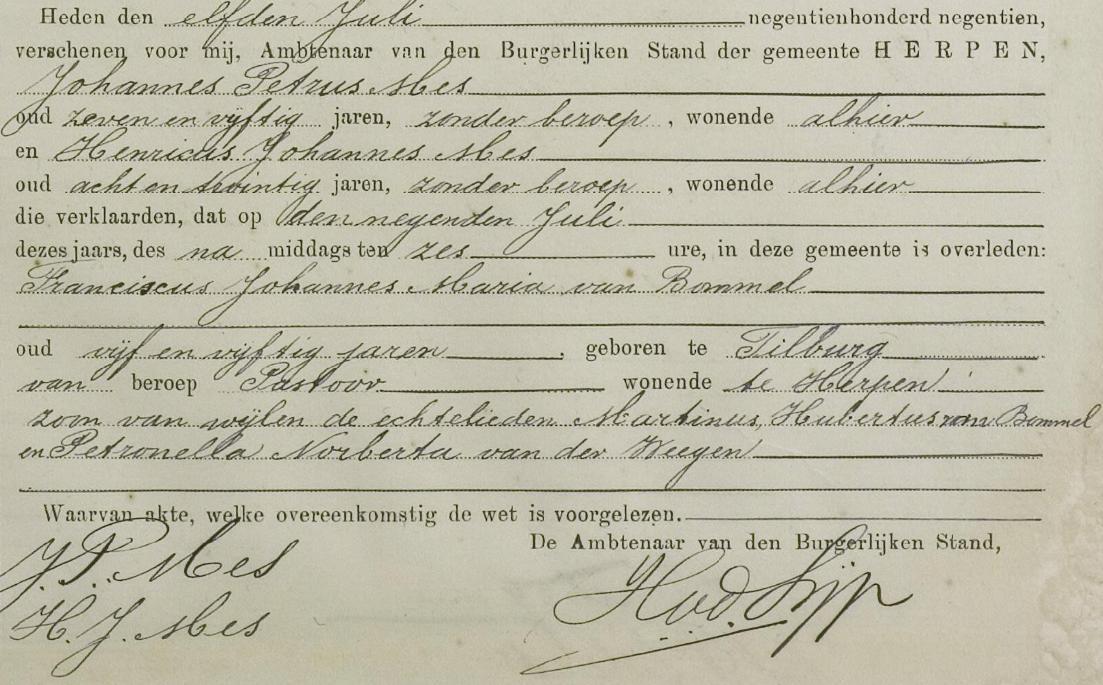 Heden den elfden Juli negentienhonderd negentien,
verschenen voor mij, Ambtenaar van den Burgerlijken Stand der gemeente HERPEN,
Johannes Petrus Mes
oud zeven en vijftig jaren, zonder beroep, wonende alhier
en Henricus Johannes Mes
oud acht en twintig jaren, zonder beroep, wonende alhier
die verklaarden, dat op den negenden Juli
dezes jaars, des na middags ten zes ure, in deze gemeente is overleden:
Franciscus Johannes Maria van Bommel
oud vijf en vijftig jaren, geboren te Tilburg
van beroep Pastoor wonende te Herpen
zoon van wijlen de echtelieden Martinus Hubertus van Bommel
en Petronella Norberta van der Weegen
Waarvan akte, welke overeenkomstig de wet is voorgelezen.
De Ambtenaar van den Burgerlijken Stand,
J. P. Mes
H. J. Mes